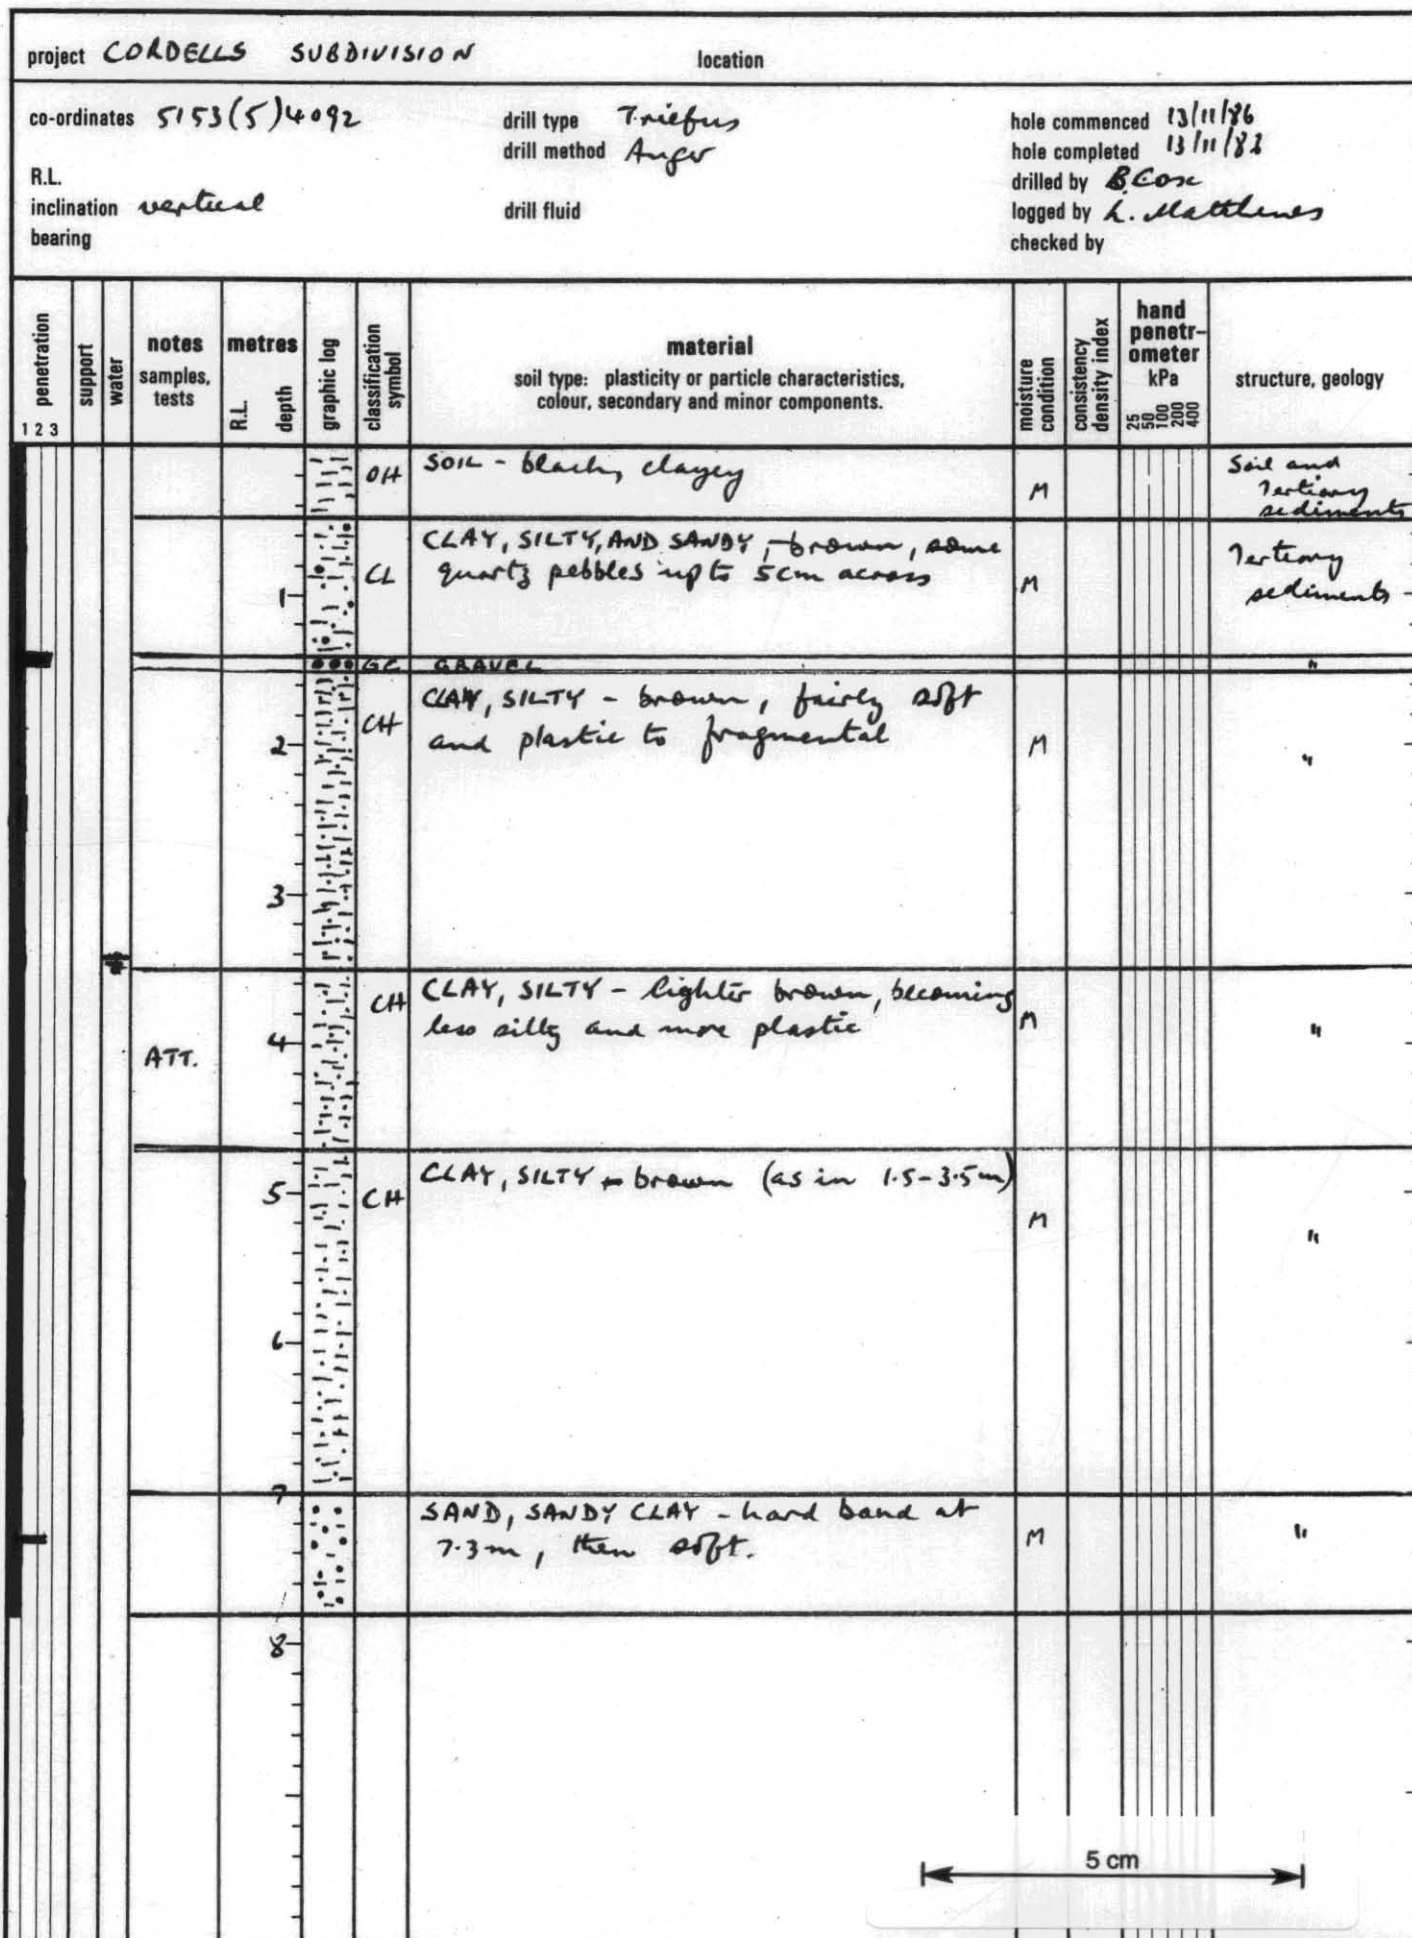 project CORDELLS SUBDIVISION location
co-ordinates 5153(5)4092 drill type Triefus hole commenced 13/11/86
drill method Auger hole completed 13/11/83
R.L. drilled by B.Cox
inclination vertical drill fluid logged by L. Matthews
bearing checked by
penetration
1 2 3
support
water
notes
samples,
tests
metres
R.L.
depth
graphic log
classification
symbol
material
soil type: plasticity or particle characteristics,
colour, secondary and minor components.
moisture
condition
consistency
density index
hand
penetr-
ometer
kPa
25
50
100
200
400
structure, geology
OH SOIL - black, clayey M Soil and
Tertiary
sediments
CLAY, SILTY, AND SANDY, brown, some Tertiary
1 CL quartz pebbles up to 5cm across M sediments
GC GRAVEL "
CLAY, SILTY - brown, fairly soft
2 CH and plastic to fragmental M "
3
CH CLAY, SILTY - lighter brown, becoming
less silty and more plastic M "
4
ATT.
CLAY, SILTY - brown (as in 1.5-3.5m)
5 CH M "
6
7
SAND, SANDY CLAY - hard band at
7.3m, then soft. M "
8
5 cm